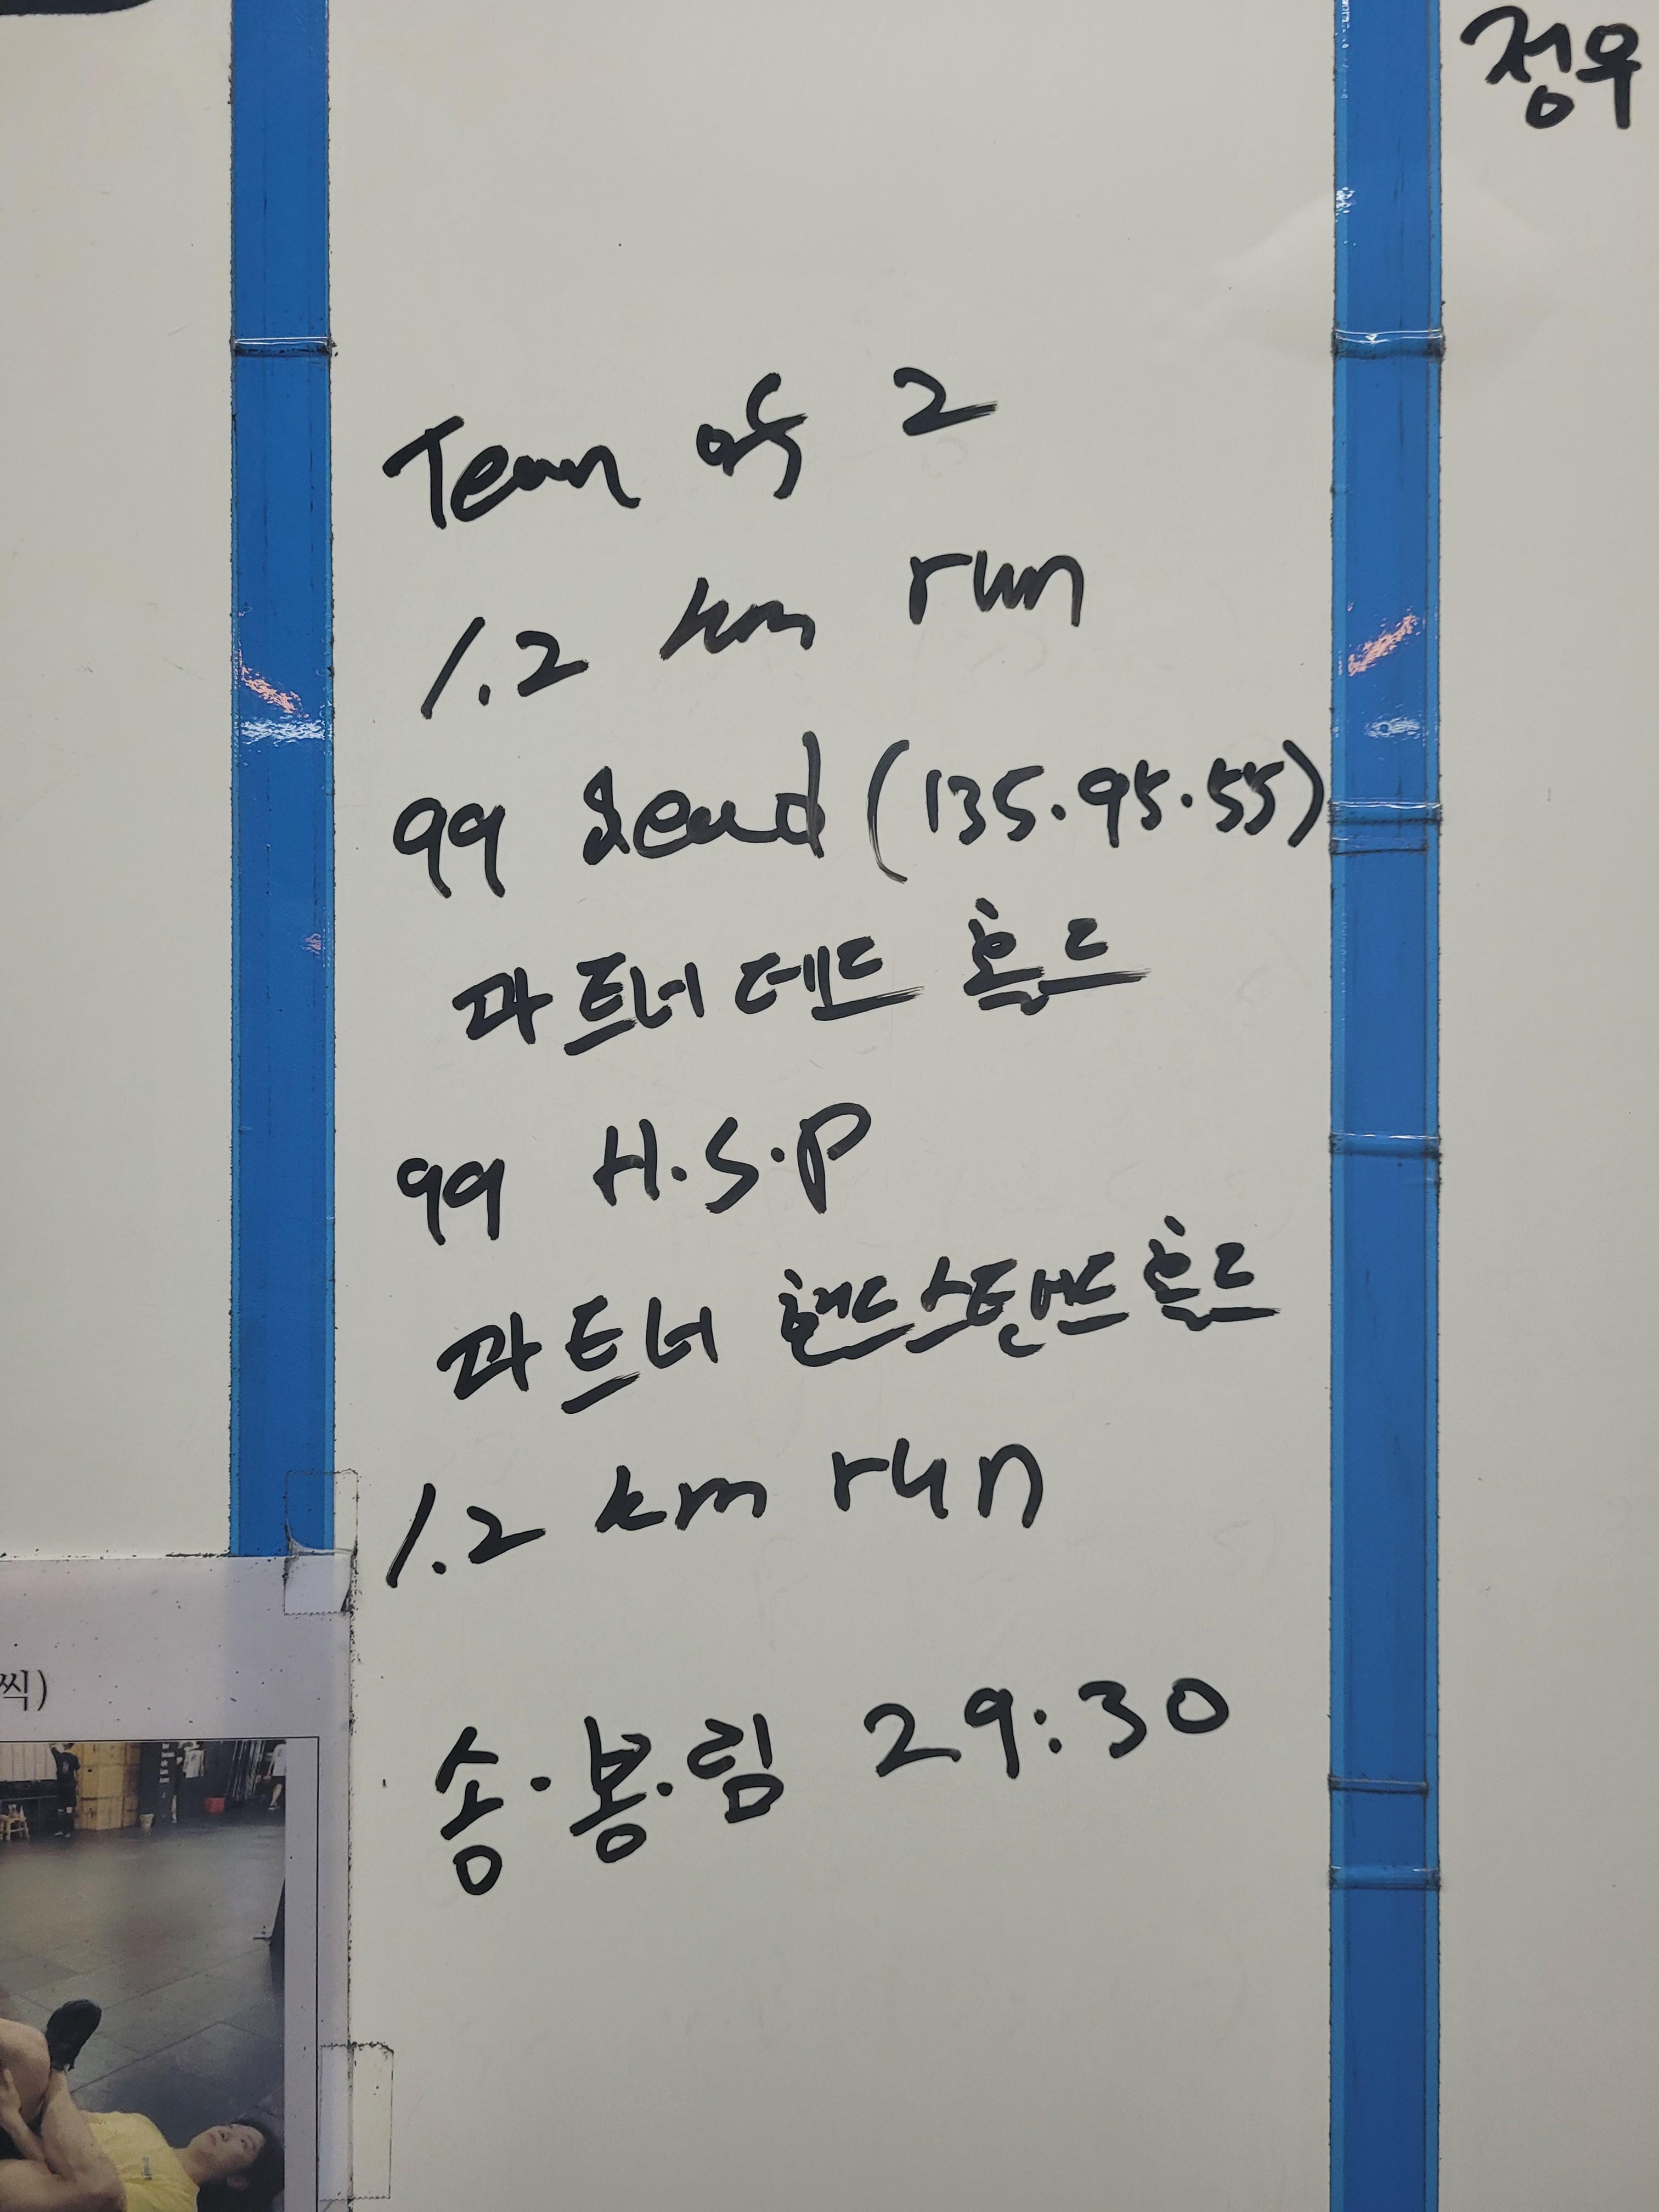 정우
Team of 2
1.2 km run
99 Lead (135.95.55)
파트너 데드 홀드
99 H.S.P
파트너 핸드스탠드 홀드
1.2 km run
씩)
송.봉.림 29:30